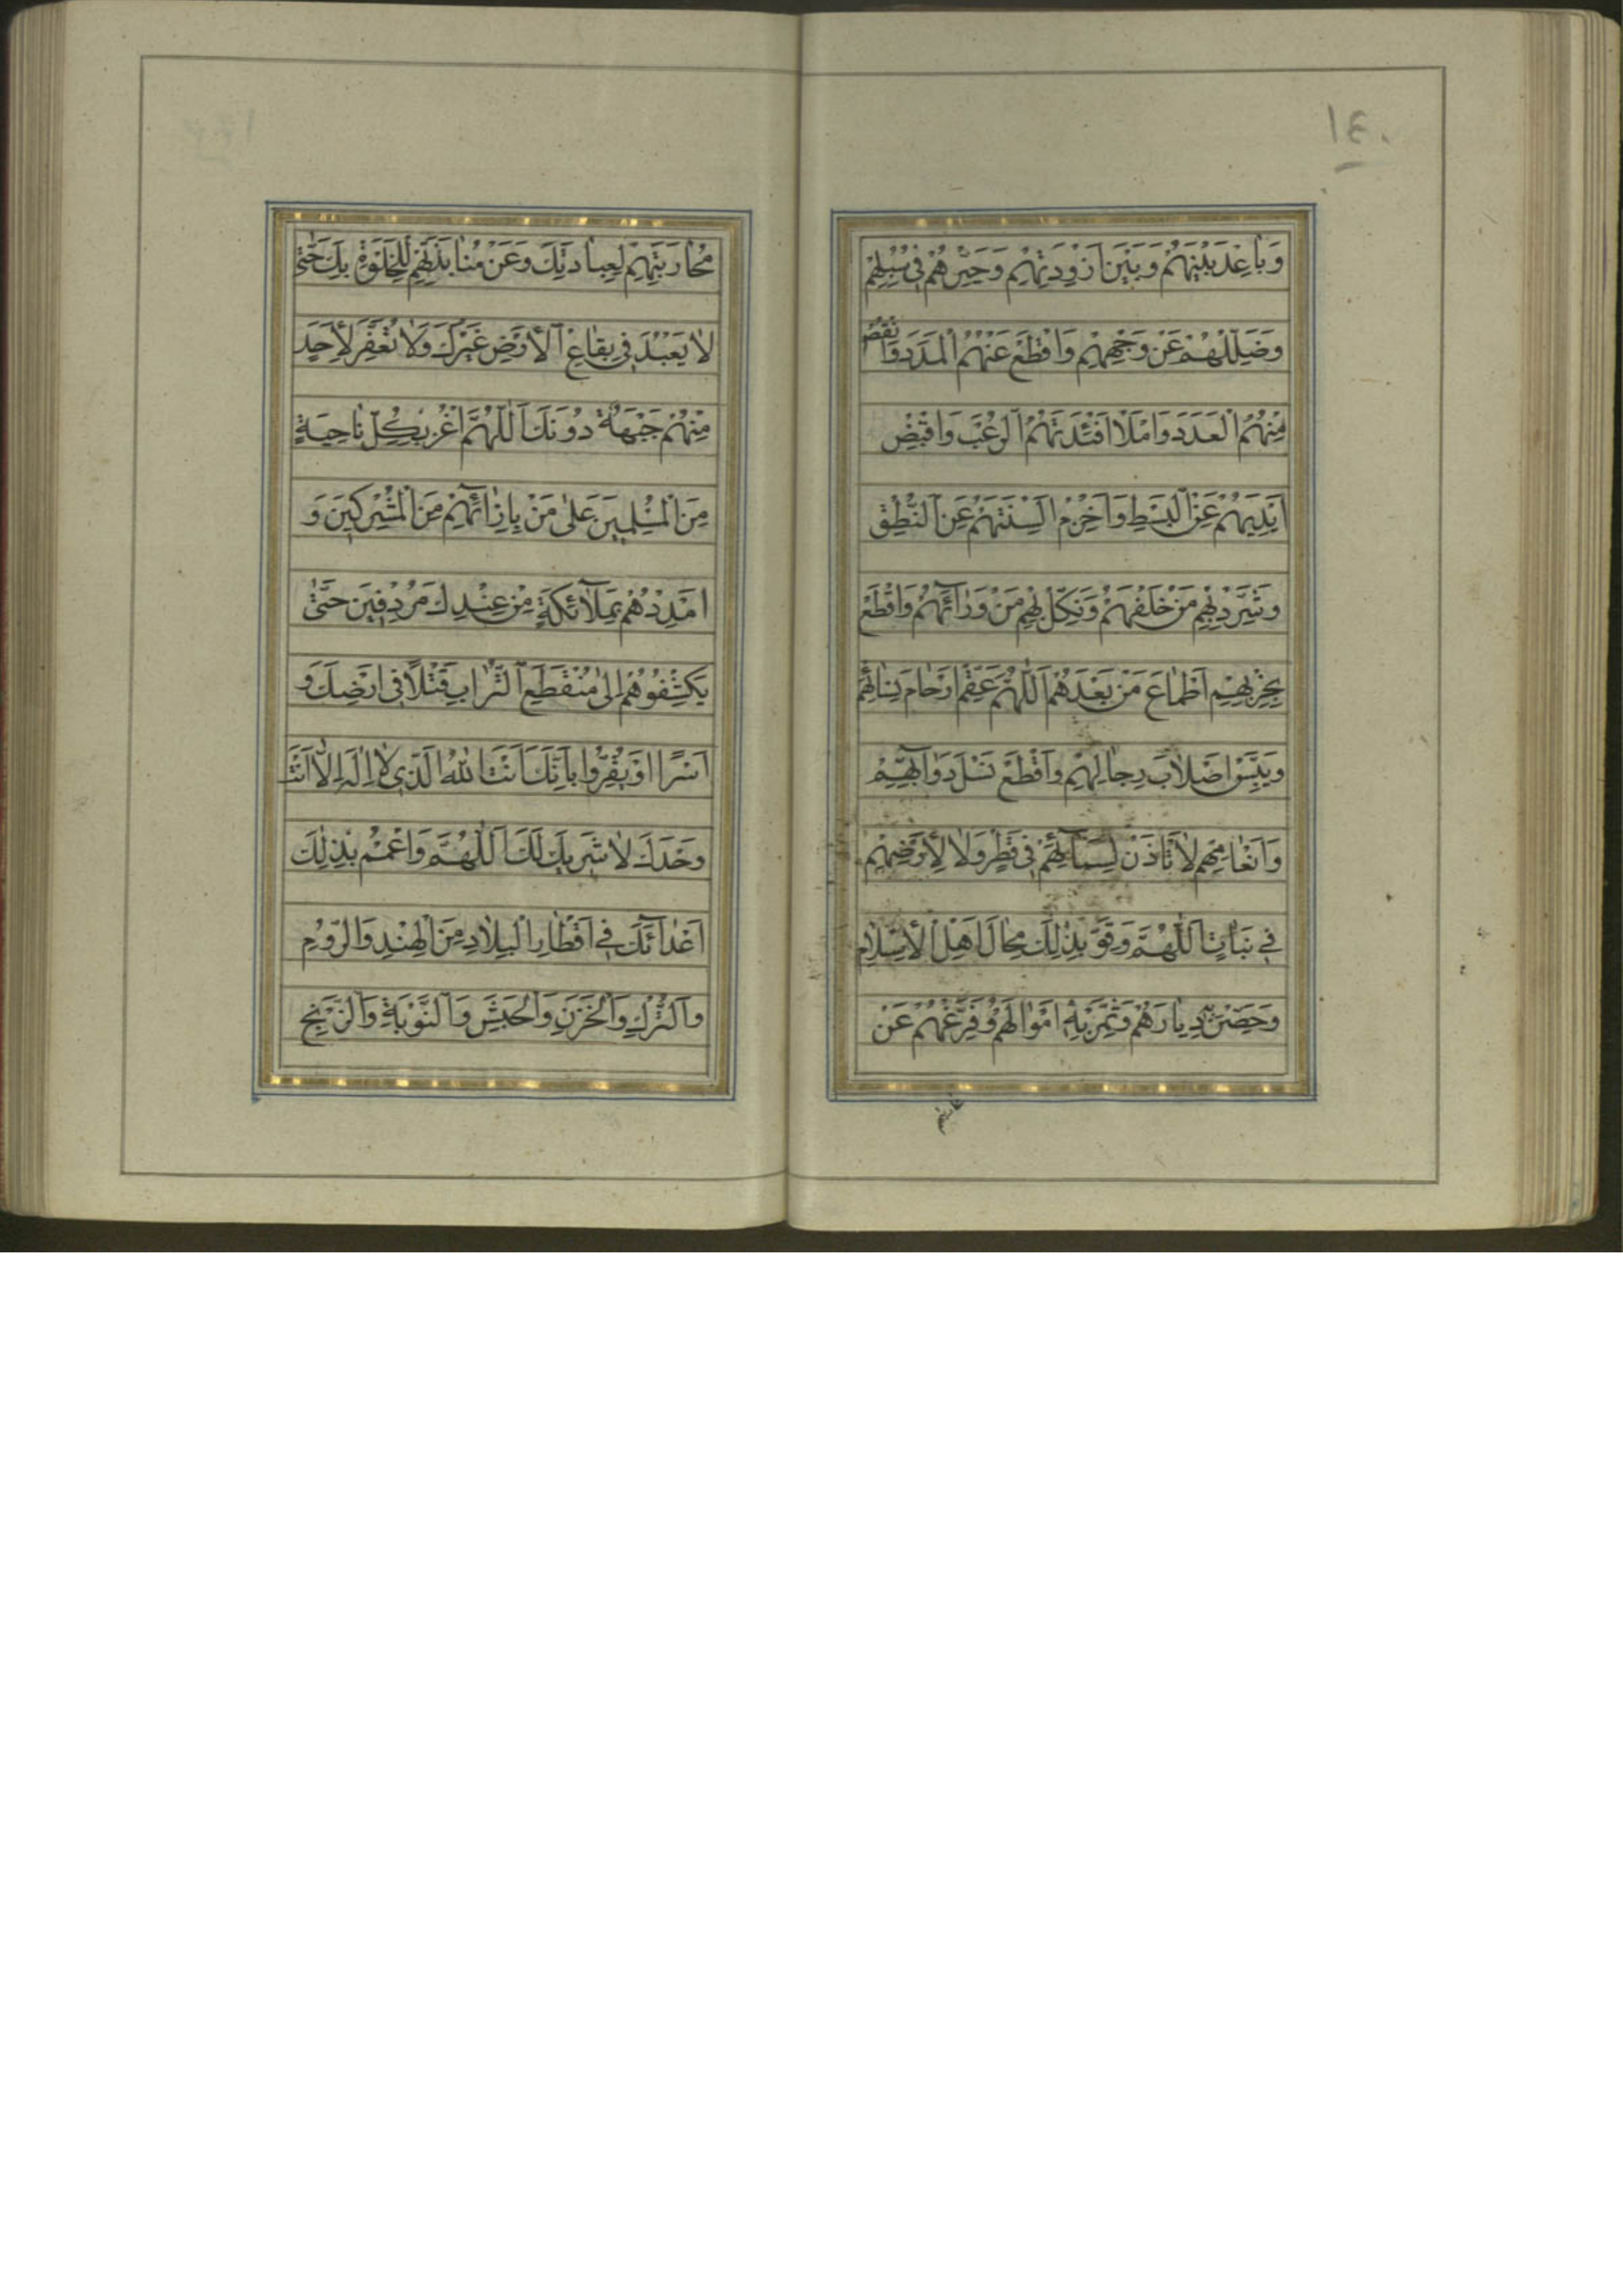 ١٤٠
وَبَاعِدْ بَيْنَهُمْ وَبَيْنَ اَزْوِدَتِهِمْ وَحَيِّرْهُمْ فِي سُبُلِهِمْ
وَضَلِّلْهُمْ عَنْ وَجْهِهِمْ وَاقْطَعْ عَنْهُمُ الْمَدَدَ وَانْقُصْ
مِنْهُمُ الْعَدَدَ وَامْلَأْ اَفْئِدَتَهُمُ الرُّعْبَ وَاقْبِضْ
اَيْدِيَهُمْ عَنِ الْبَسْطِ وَاخْزِمْ اَلْسِنَتَهُمْ عَنِ النُّطْقِ
وَشَرِّدْ بِهِمْ مَنْ خَلْفَهُمْ وَنَكِّلْ بِهِمْ مَنْ وَرَآئَهُمْ وَاقْطَعْ
بِخِزْيِهِمْ اَطْمَاعَ مَنْ بَعْدَهُمْ اَللّٰهُمَّ عَقِّمْ اَرْحَامَ نِسَائِهِمْ
وَيَبِّسْ اَصْلَابَ رِجَالِهِمْ وَاقْطَعْ نَسْلَ دَوَآبِّهِمْ
وَاَنْعَامِهِمْ لَا تَأْذَنْ لِسَمَآئِهِمْ فِي قَطْرٍ وَلَا لِاَرْضِهِمْ
فِي نَبَاتٍ اَللّٰهُمَّ وَقَوِّ بِذٰلِكَ مِحَالَ اَهْلِ الْاِسْلَامِ
وَحَصِّنْ بِهِ دِيَارَهُمْ وَثَمِّرْ بِهِ اَمْوَالَهُمْ وَفَرِّغْهُمْ عَنْ
مُحَارَبَتِهِمْ لِعِبَادَتِكَ وَعَنْ مُنَابَذَتِهِمْ لِلْخَلْوَةِ بِكَ حَتّٰى
لَا يُعْبَدَ فِي بِقَاعِ الْاَرْضِ غَيْرُكَ وَلَا تُعَفَّرَ لِاَحَدٍ
مِنْهُمْ جَبْهَةٌ دُونَكَ اَللّٰهُمَّ اغْزُ بِكُلِّ نَاحِيَةٍ
مِنَ الْمُسْلِمِينَ عَلٰى مَنْ بِاِزَائِهِمْ مِنَ الْمُشْرِكِينَ وَ
اَمْدِدْهُمْ بِمَلَآئِكَةٍ مِنْ عِنْدِكَ مُرْدِفِينَ حَتّٰى
يَكْشِفُوهُمْ اِلٰى مُنْقَطَعِ التُّرَابِ قَتْلًا فِي اَرْضِكَ وَ
اَسْرًا اَوْ يُقِرُّوا بِاَنَّكَ اَنْتَ اللهُ الَّذِي لَا اِلٰهَ اِلَّا اَنْتَ
وَحْدَكَ لَا شَرِيكَ لَكَ اَللّٰهُمَّ وَاعْمُمْ بِذٰلِكَ
اَعْدَآئَكَ فِي اَقْطَارِ الْبِلَادِ مِنَ الْهِنْدِ وَالرُّومِ
وَالتُّرْكِ وَالْخَزَرِ وَالْحَبَشِ وَالنُّوبَةِ وَالزَّنْجِ